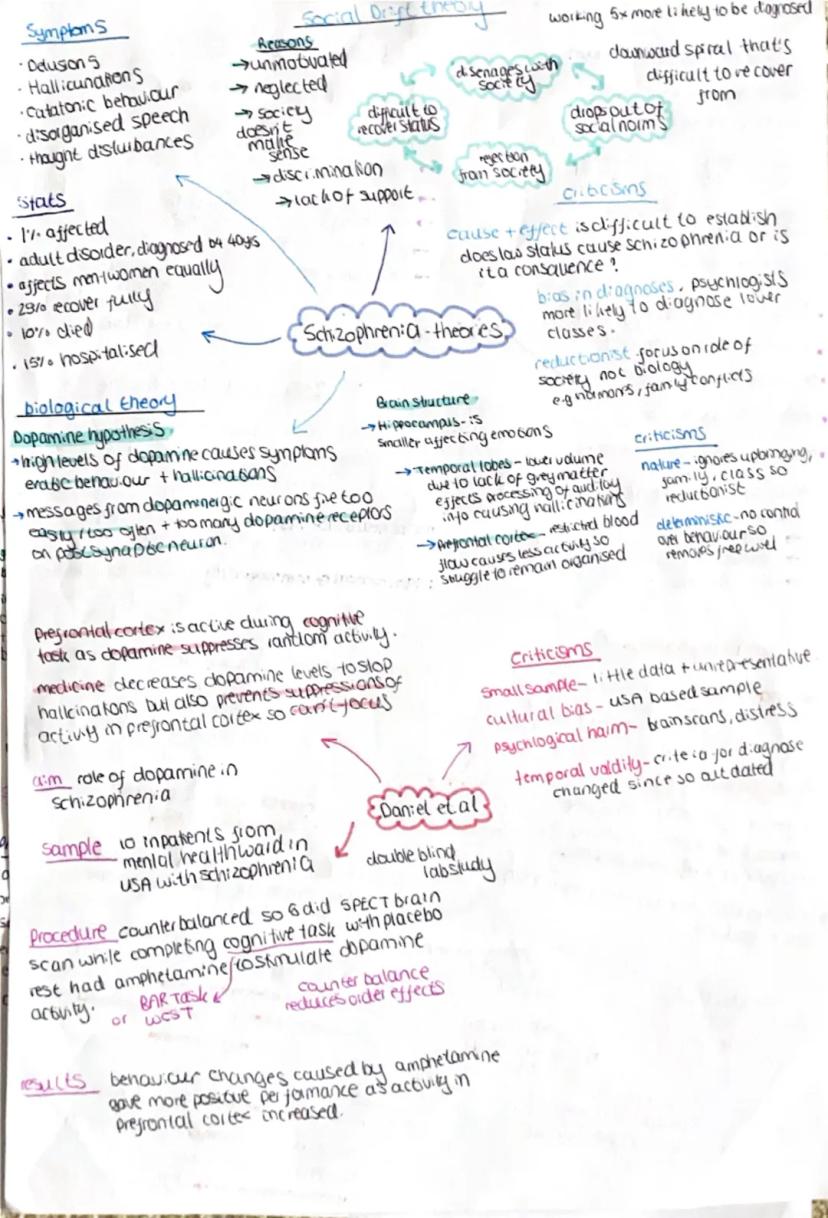 Social Drift theory
working 5x more likely to be diagnosed
downward spiral that's
difficult to recover
from
Symptoms
· Delusions
· Hallicunations
· Catatonic behaviour
· disorganised speech
· thought disturbances
Reasons
→ unmotivated
→ neglected
→ society
doesn't
make
sense
→ discrimination
→ lack of support
disenages with
society
drops out of
social norms
rejection
from society
difficult to
recover status
Stats
· 1% affected
· adult disorder, diagnosed by 40ys
· affects men+women equally
· 25% recover fully
· 10% died
· 15% hospitalised
criticisms
cause + effect is difficult to establish
does low status cause schizophrenia or is
it a consquence?
bias in diagnoses, psychlogists
more likely to diagnose lower
classes.
reductionist focus on role of
society not biology
e.g normones, family conflicts
Schizophrenia - theories
biological theory
Dopamine hypothesis
→ high levels of dopamine causes symptoms
eratic behaviour + hallicinations
→ messages from dopaminergic neurons fire too
easily/too often + too many dopamine receptors
on post synaptic neuron.
Brain structure
→ Hippocampus - is
smaller affecting emotions
→ Temporal lobes - lower volume
due to lack of grey matter
effects processing of auditory
info causing hallicinations
→ Prefrontal cortex - restricted blood
flow causes less activity so
struggle to remain organised
criticisms
nature - ignores upbringing,
family, class so
reductionist
deterministic - no control
over behaviour so
removes free will
Prefrontal cortex is active during cognitive
task as dopamine suppresses random activity.
medicine decreases dopamine levels to stop
hallcinations but also prevents suppressions of
activity in prefrontal cortex so can't focus
Criticisms
small sample - little data + unrepresentative
cultural bias - USA based sample
psychlogical harm - brainscans, distress
temporal validity - criteria for diagnose
changed since so outdated
Daniel et.al
double blind
lab study
aim role of dopamine in
schizophrenia
Sample 10 inpatients from
mental health ward in
USA with schizophrenia
Procedure counterbalanced so 6 did SPECT brain
scan while completing cognitive task with placebo
rest had amphetamine to stimulate dopamine
activity.
BAR Task
or WCST
counter balance
reduces order effects
results behaviour changes caused by amphetamine
gave more positive performance as activity in
prefrontal cortex increased.